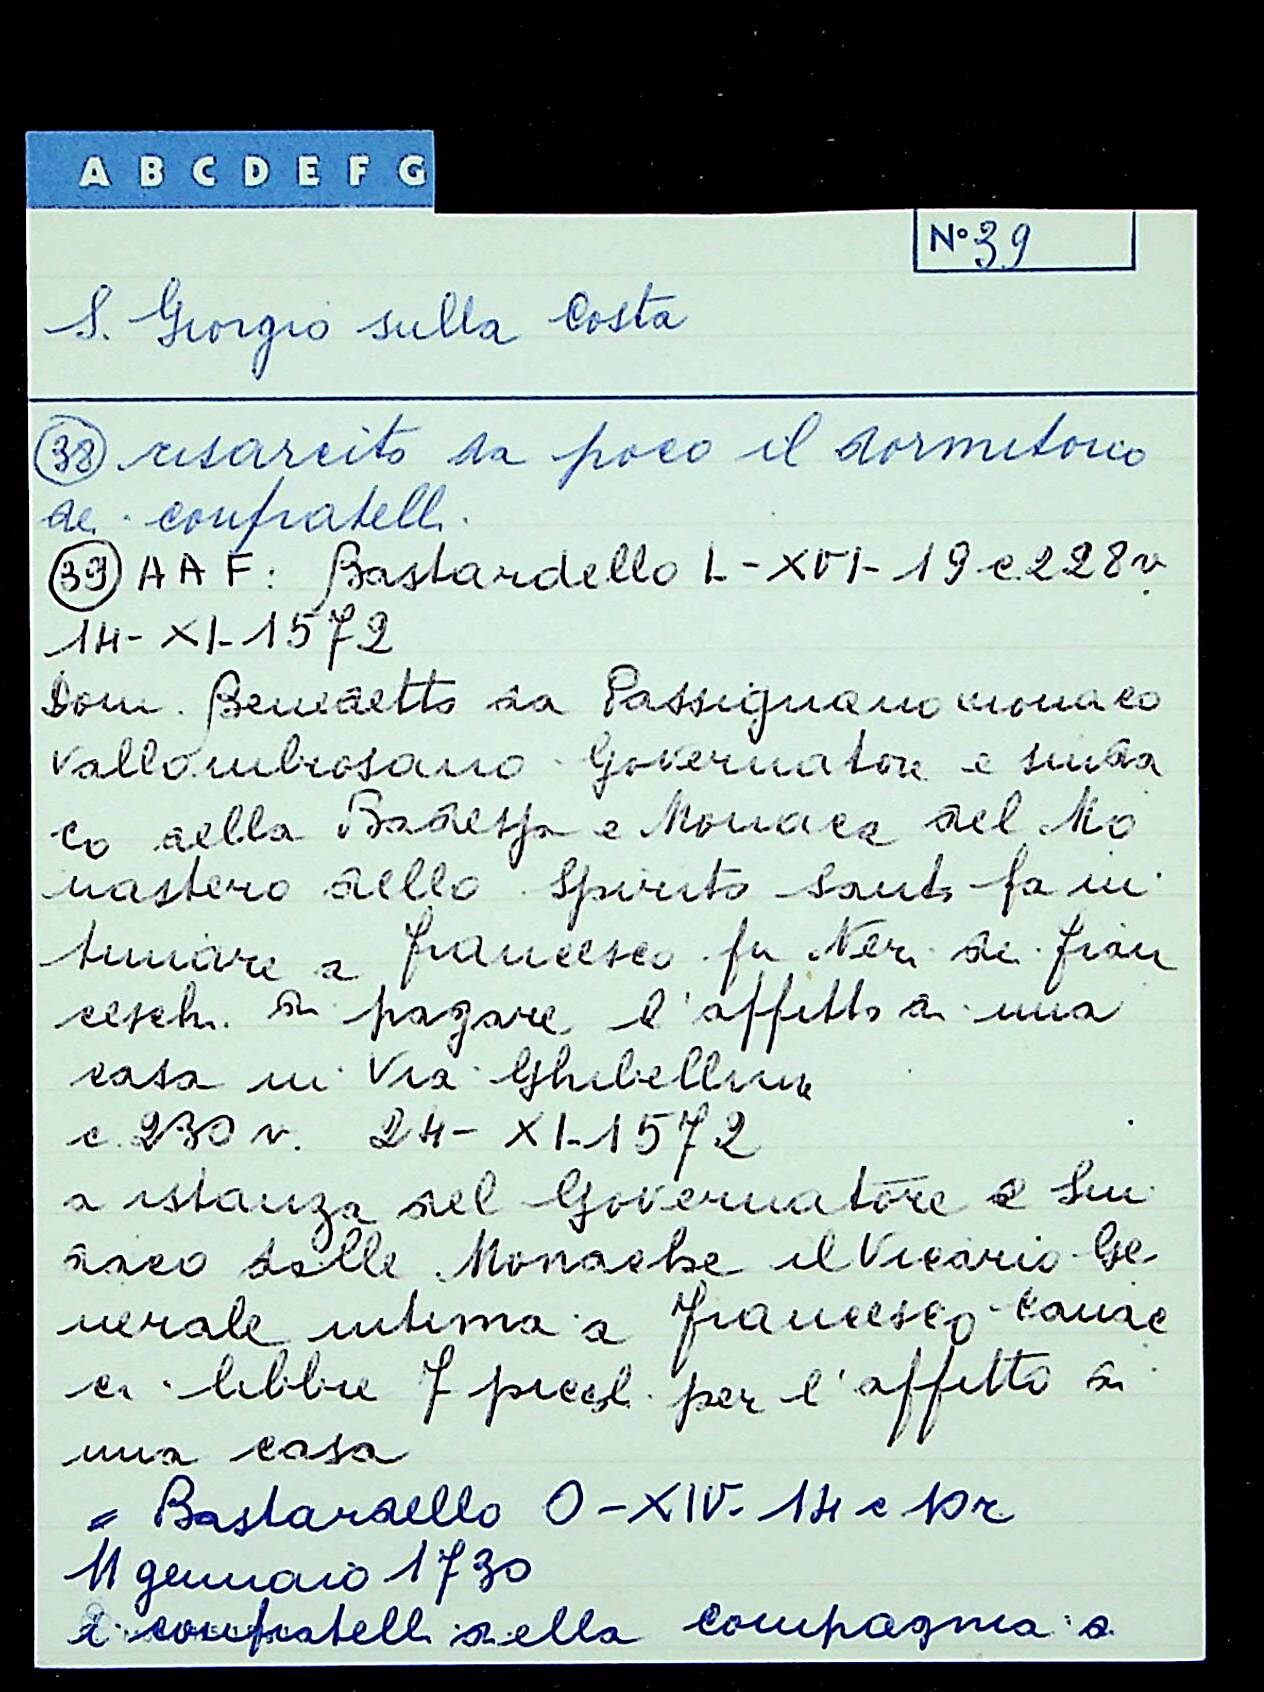 A B C D E F G
Nº 39
S. Giorgio sulla Costa
(38) risarcito da poco il dormitorio
dei confratelli.
(39) A A F: Bastardello L-XVI-19 c.228v
14-XI-1572
Dom. Benedetto da Passignano monaco
Vallombrosano Governatore e sinda
co della Badessa e Monace del Mo
nastero dello Spirito Santo fa in
timare a Francesco fu Neri dei Fran
ceschi di pagare l'affitto di una
casa in Via Ghibellina
c.230v. 24-XI-1572
a istanza del Governatore e Sin
daco delle Monache il Vicario Ge
nerale intima a Francesco Canac
ci libbre 7 piccoli per l'affitto di
una casa
= Bastardello O-XIV-14 c 10r
11 gennaio 1730
i confratelli della compagnia a